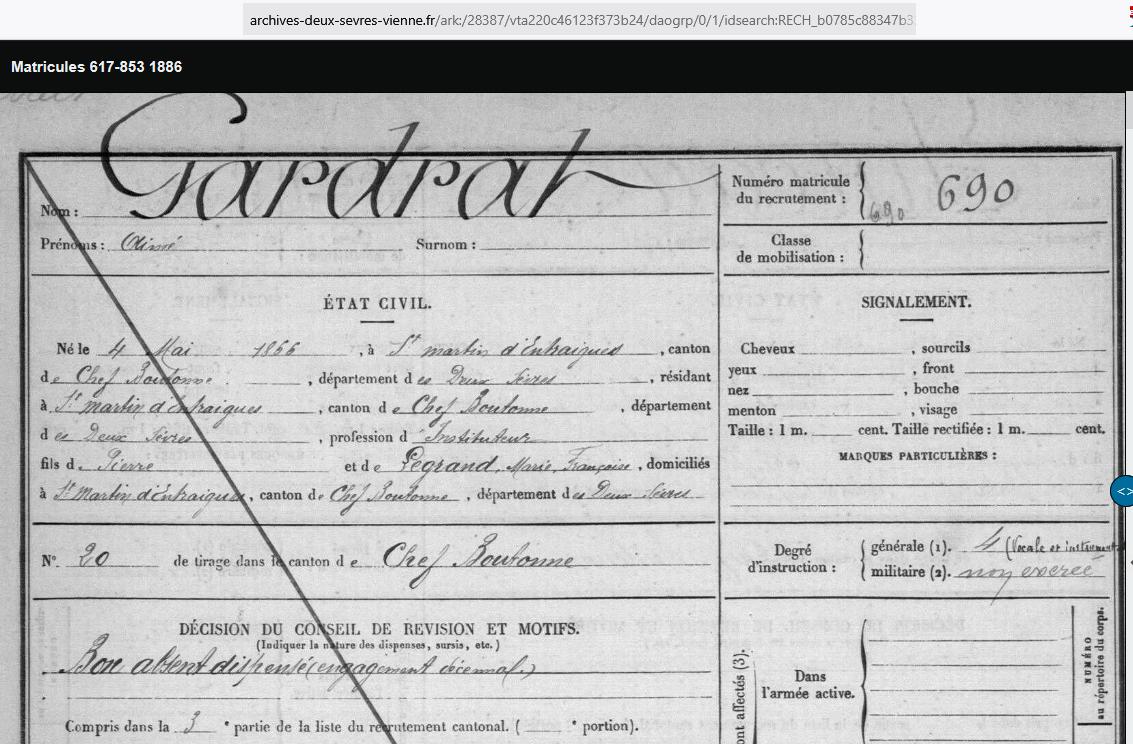 archives-deux-sevres-vienne.fr/ark:/28387/vta220c46123f373b24/daogrp/0/1/idsearch:RECH_b0785c88347b3
Matricules 617-853 1886
Gardrat
Nom :
Prénoms : Aimé Surnom :
Numéro matricule du recrutement : 690 690
Classe de mobilisation :
ÉTAT CIVIL.
Né le 4 Mai 1866, à St martin d'Entraigues, canton
de Chef Boutonne, département des Deux Sèvres, résidant
à St martin d'Entraigues, canton de Chef Boutonne, département
des Deux Sèvres, profession d Instituteur
fils d. Pierre et de Legrand, Marie, Françoise, domiciliés
à St Martin d'Entraigues, canton de Chef Boutonne, département des Deux Sèvres
SIGNALEMENT.
Cheveux , sourcils
yeux , front
nez , bouche
menton , visage
Taille : 1 m. cent. Taille rectifiée : 1 m. cent.
MARQUES PARTICULIÈRES :
N° 20 de tirage dans le canton de Chef Boutonne
Degré d'instruction :
générale (1). 4 (Vocale et instrument
militaire (2). non exercé
DÉCISION DU CONSEIL DE REVISION ET MOTIFS.
(Indiquer la nature des dispenses, sursis, etc.)
Bon absent dispensé (engagement décennal)
Compris dans la 3 e partie de la liste du recrutement cantonal. ( e portion).
ont affectés (3).
Dans l'armée active.
NUMÉRO
au répertoire du corps.